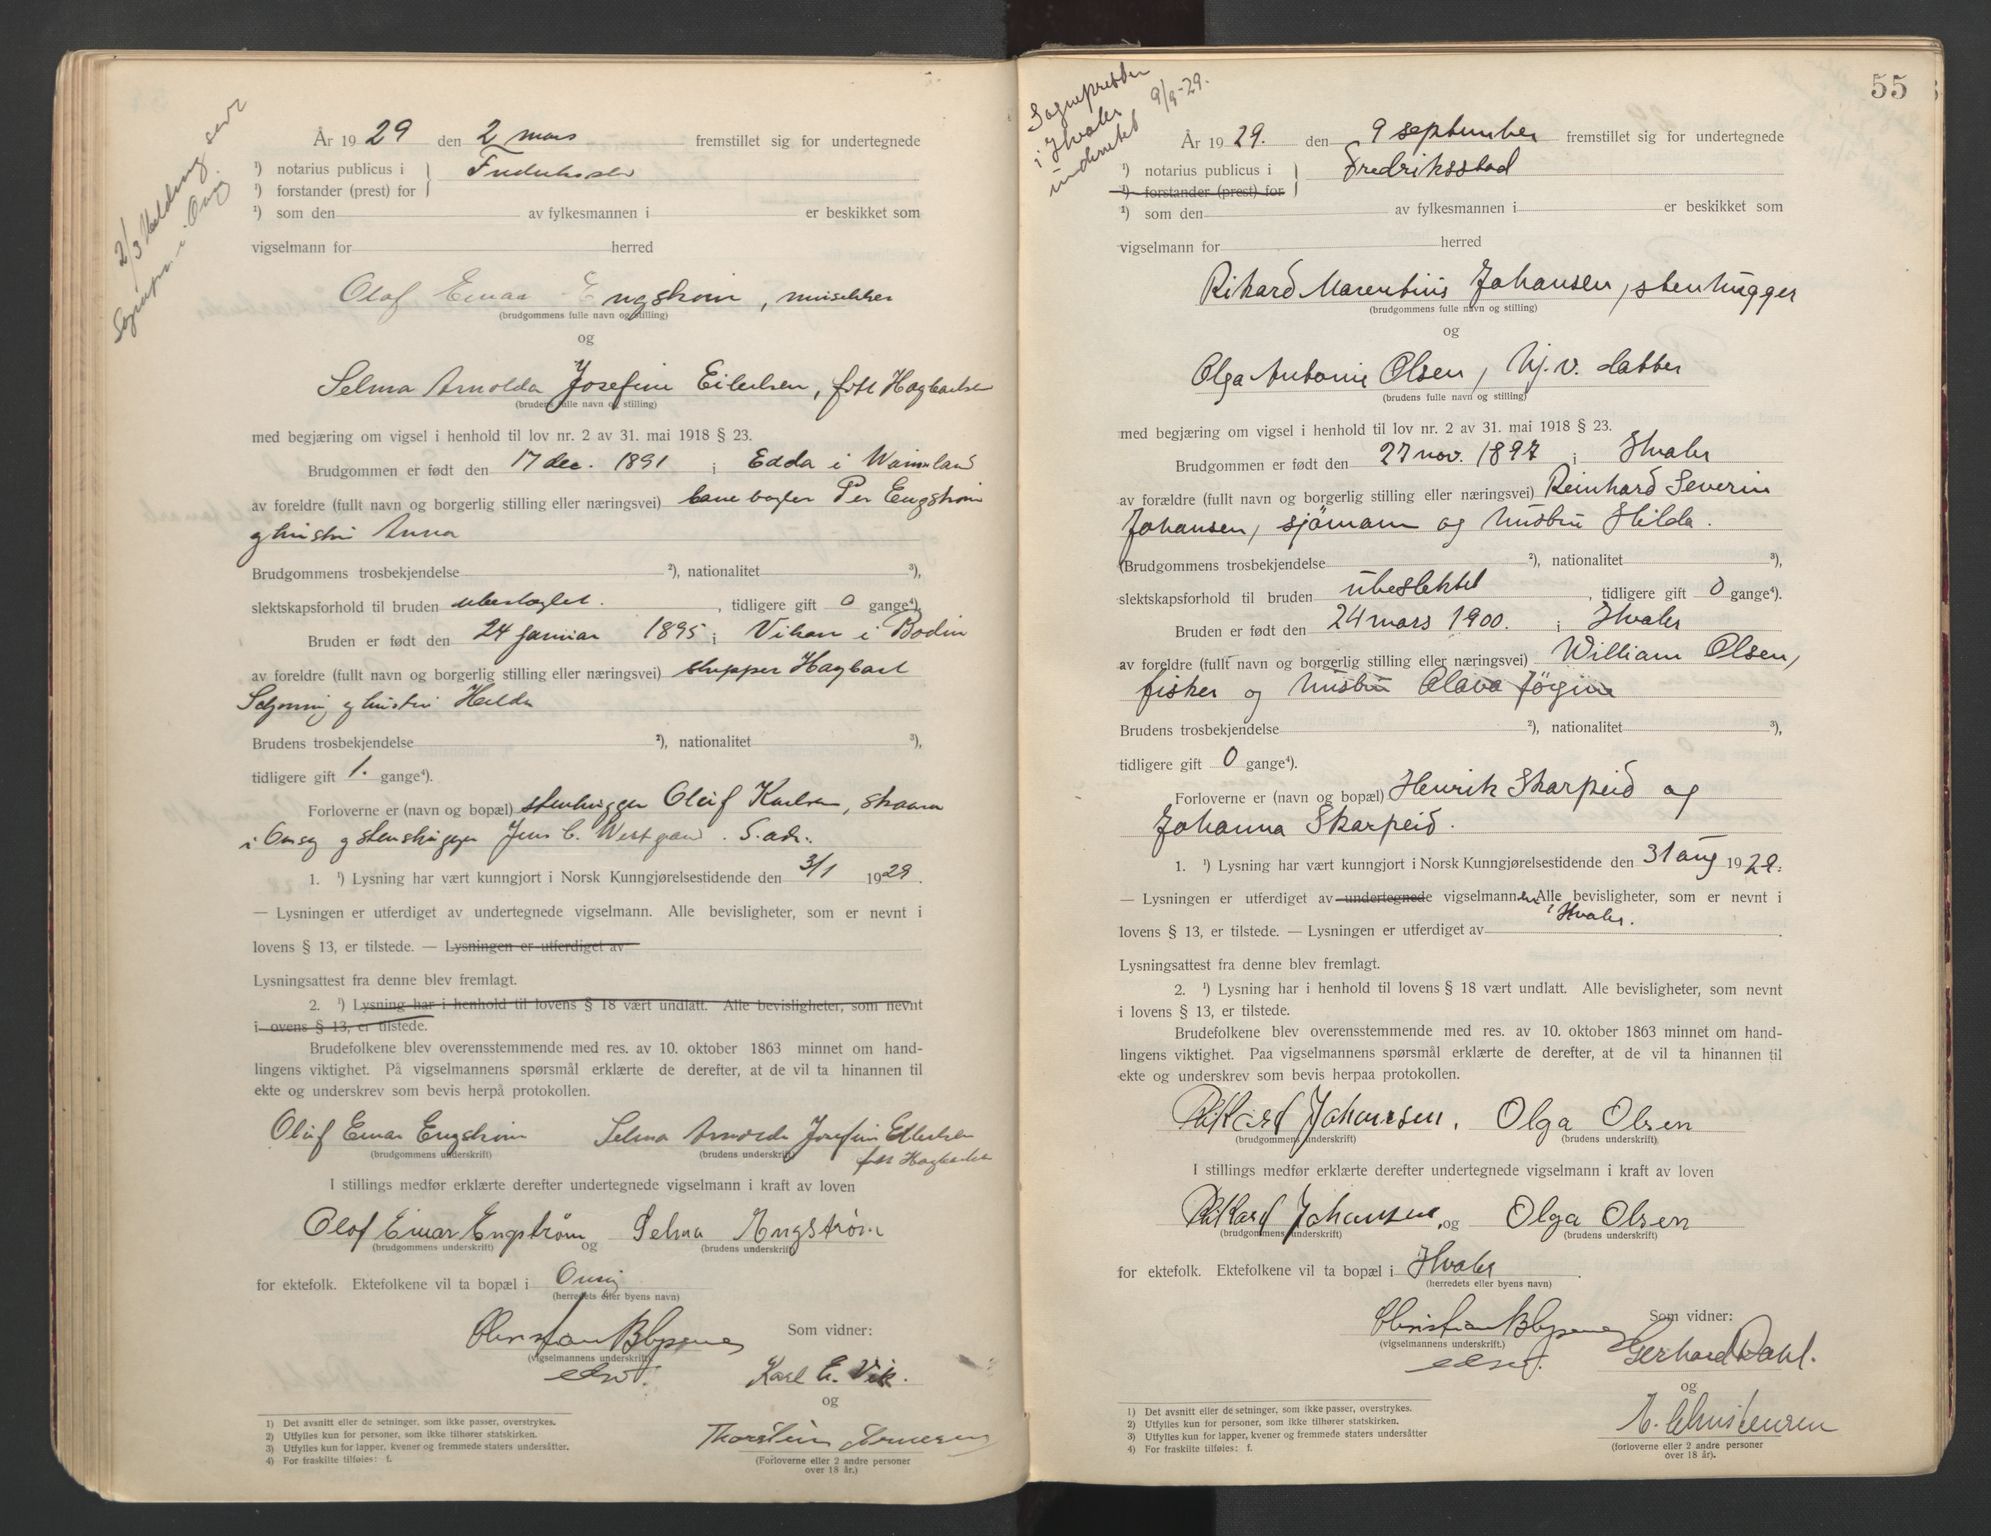 2/3 Melding
Sognepr. i Onsø
År 1929 den 2 mars fremstillet sig for undertegnede
¹) notarius publicus i
¹) forstander (prest) for
¹) som den av fylkesmannen i er beskikket som
vigselmann for herred
Olaf Einar Engstrøm,
(brudgommens fulle navn og stilling)
og
Selma Arnolda Josefine Eilertsen, født Hagbartsen
(brudens fulle navn og stilling)
med begjæring om vigsel i henhold til lov nr. 2 av 31. mai 1918 § 23.
Brudgommen er født den 17 dec. 1891 i Edda i Wärmland
av foreldre (fullt navn og borgerlig stilling eller næringsvei) Per Engstrøm
og hustru Anna
Brudgommens trosbekjendelse ²), nationalitet ³),
slektskapsforhold til bruden ubeslægtet. , tidligere gift 0 gange⁴).
Bruden er født den 24 januar 1895 i Vikan i Bodin
av foreldre (fullt navn og borgerlig stilling eller næringsvei) skipper Hagbart
og hustru Hilda
Brudens trosbekjendelse ²), nationalitet ³),
tidligere gift 1. gange⁴).
Forloverne er (navn og bopæl) stenhugger Oluf Karlsen,
i Onsø og stenhugger Jens C. Westgaard. S. ads.
1. ¹) Lysning har vært kunngjort i Norsk Kunngjørelsestidende den 3/1 1929.
— Lysningen er utferdiget av undertegnede vigselmann. Alle bevisligheter, som er nevnt i
lovens § 13, er tilstede. — Lysningen er utferdiget av
Lysningsattest fra denne blev fremlagt.
2. ¹) Lysning har i henhold til lovens § 18 vært undlatt. Alle bevisligheter, som nevnt
i lovens § 13, er tilstede.
Brudefolkene blev overensstemmende med res. av 10. oktober 1863 minnet om hand-
lingens viktighet. På vigselmannens spørsmål erklærte de derefter, at de vil ta hinannen til
ekte og underskrev som bevis herpå protokollen.
Oluf Einar Engstrøm Selma Arnolda Josefin Eilertsen
(brudgommens underskrift) (brudens underskrift)
født Hagbartsen
I stillings medfør erklærte derefter undertegnede vigselmann i kraft av loven
Olof Einar Engström og Selma Engstrøm
(brudgommens underskrift) (brudens underskrift)
for ektefolk. Ektefolkene vil ta bopæl i Onsø
(herredets eller byens navn)
Som vidner:
Christian
(vigselmannens underskrift)
Karl E. Vik.
og
Thorstein Arnesen
(Forloverne eller 2 andre personer
over 18 år.)
1) Det avsnitt eller de setninger, som ikke passer, overstrykes.
2) Utfylles kun for personer, som ikke tilhører statskirken.
3) Utfylles kun for lapper, kvener og fremmede staters undersåtter.
4) For fraskilte tilføies: f.
55
Sognepresten
i Hvaler
underrettet
9/9-29.
År 1929. den 9 september fremstillet sig for undertegnede
¹) notarius publicus i Fredriksstad
¹) forstander (prest) for
¹) som den av fylkesmannen i er beskikket som
vigselmann for herred
Rikard Marentius Johansen, stenhugger
(brudgommens fulle navn og stilling)
og
Olga Antonie Olsen, hj.v. datter
(brudens fulle navn og stilling)
med begjæring om vigsel i henhold til lov nr. 2 av 31. mai 1918 § 23.
Brudgommen er født den 27 nov. 1897 i Hvaler
av forældre (fullt navn og borgerlig stilling eller næringsvei) Reinhard Severin
Johansen, sjömann og hustru Hilda.
(Brudgommens trosbekjendelse ²), nationalitet ³),
slektskapsforhold til bruden ubeslektet , tidligere gift 0 gange⁴).
Bruden er født den 24 mars 1900. i Hvaler
av foreldre (fullt navn og borgerlig stilling eller næringsvei) William Olsen,
fisker og hustru Olava Jörgine
Brudens trosbekjendelse ²), nationalitet ³),
tidligere gift 0 gange⁴).
Forloverne er (navn og bopæl) Henrik Skarpeid og
Johanna Skarpeid.
1. ¹) Lysning har vært kunngjort i Norsk Kunngjørelsestidende den 31 aug 1929.
— Lysningen er utferdiget av undertegnede vigselmannen Alle bevisligheter, som er nevnt i
i Hvaler.
lovens § 13, er tilstede. — Lysningen er utferdiget av
Lysningsattest fra denne blev fremlagt.
2. ¹) Lysning har i henhold til lovens § 18 vært undlatt. Alle bevisligheter, som nevnt
i lovens § 13, er tilstede.
Brudefolkene blev overensstemmende med res. av 10. oktober 1863 minnet om hand-
lingens viktighet. Paa vigselmannens spørsmål erklærte de derefter, at de vil ta hinannen til
ekte og underskrev som bevis herpaa protokollen.
Rikard Johansen, Olga Olsen
(brudgommens underskrift) (brudens underskrift)
I stillings medfør erklærte derefter undertegnede vigselmann i kraft av loven
Rikard Johansen, og Olga Olsen
(brudgommens underskrift) (brudens underskrift)
for ektefolk. Ektefolkene vil ta bopæl i Hvaler
(herredets eller byens navn)
Som vidner:
Christian
(vigselmannens underskrift.)
Gerhard Dahl.
og
E. Christensen
(forloverne eller 2 andre personer
over 18 år).
1) Det avsnitt eller de setninger, som ikke passer, overstrykes.
2) Utfylles kun for personer, som ikke tilhører statskirken.
3) Utfylles kun for lapper, kvener og fremmede staters undersåtter
4) For fraskilte tilføies: f.